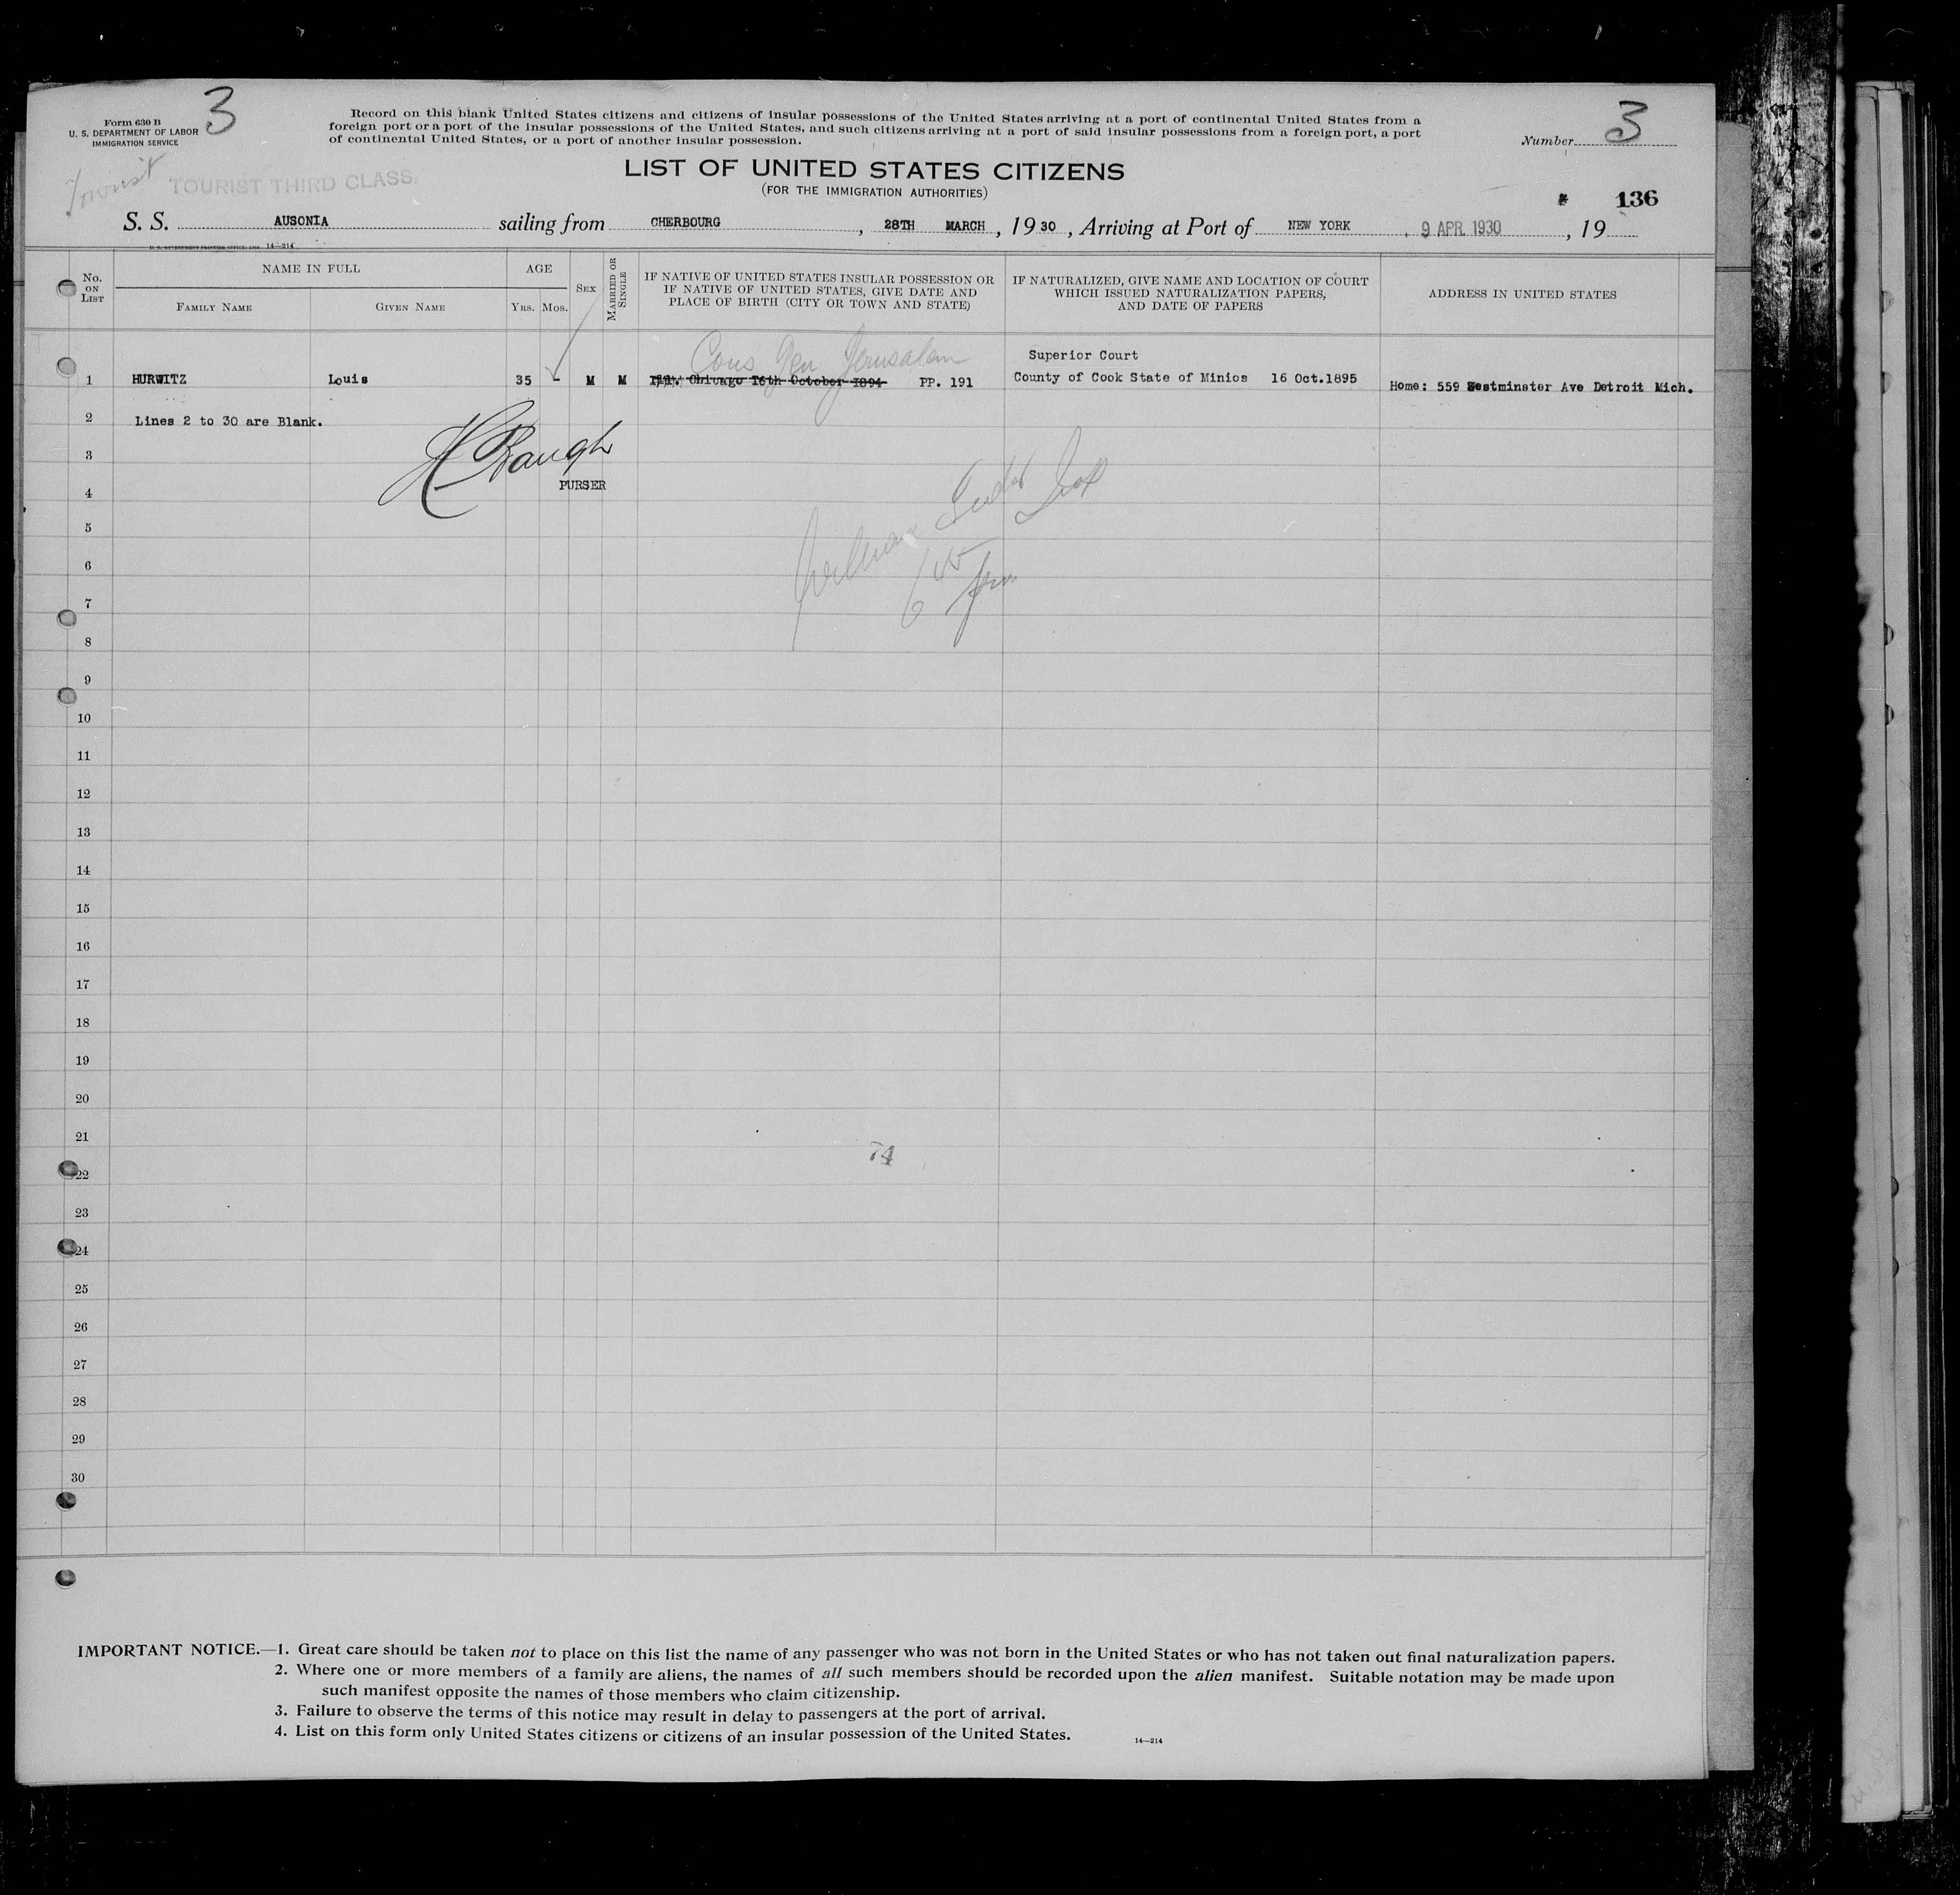 Form 630 B
U. S. DEPARTMENT OF LABOR
IMMIGRATION SERVICE
3
Record on this blank United States citizens and citizens of insular possessions of the United States arriving at a port of continental United States from a
foreign port or a port of the insular possessions of the United States, and such citizens arriving at a port of said insular possessions from a foreign port, a port
of continental United States, or a port of another insular possession.
Number 3
Tourist TOURIST THIRD CLASS.
LIST OF UNITED STATES CITIZENS
(FOR THE IMMIGRATION AUTHORITIES)
136
S. S. AUSONIA sailing from CHERBOURG, 28TH MARCH, 1930, Arriving at Port of NEW YORK, 9 APR. 1930, 19
14—214
No. ON LIST
NAME IN FULL
FAMILY NAME
GIVEN NAME
AGE
YRS. MOS.
SEX
MARRIED OR SINGLE
IF NATIVE OF UNITED STATES INSULAR POSSESSION OR
IF NATIVE OF UNITED STATES, GIVE DATE AND
PLACE OF BIRTH (CITY OR TOWN AND STATE)
IF NATURALIZED, GIVE NAME AND LOCATION OF COURT
WHICH ISSUED NATURALIZATION PAPERS,
AND DATE OF PAPERS
ADDRESS IN UNITED STATES
Cons Gen Jerusalem
Superior Court
1 HURWITZ Louis 35 - M M Chicago 16th October 1894 PP. 191 County of Cook State of Minios 16 Oct.1895 Home: 559 Westminster Ave Detroit Mich.
2 Lines 2 to 30 are Blank.
3
4
PURSER
5
6
7
8
9
10
11
12
13
14
15
16
17
18
19
20
21
74
22
23
24
25
26
27
28
29
30
IMPORTANT NOTICE.—1. Great care should be taken not to place on this list the name of any passenger who was not born in the United States or who has not taken out final naturalization papers.
2. Where one or more members of a family are aliens, the names of all such members should be recorded upon the alien manifest. Suitable notation may be made upon
such manifest opposite the names of those members who claim citizenship.
3. Failure to observe the terms of this notice may result in delay to passengers at the port of arrival.
4. List on this form only United States citizens or citizens of an insular possession of the United States.
14—214